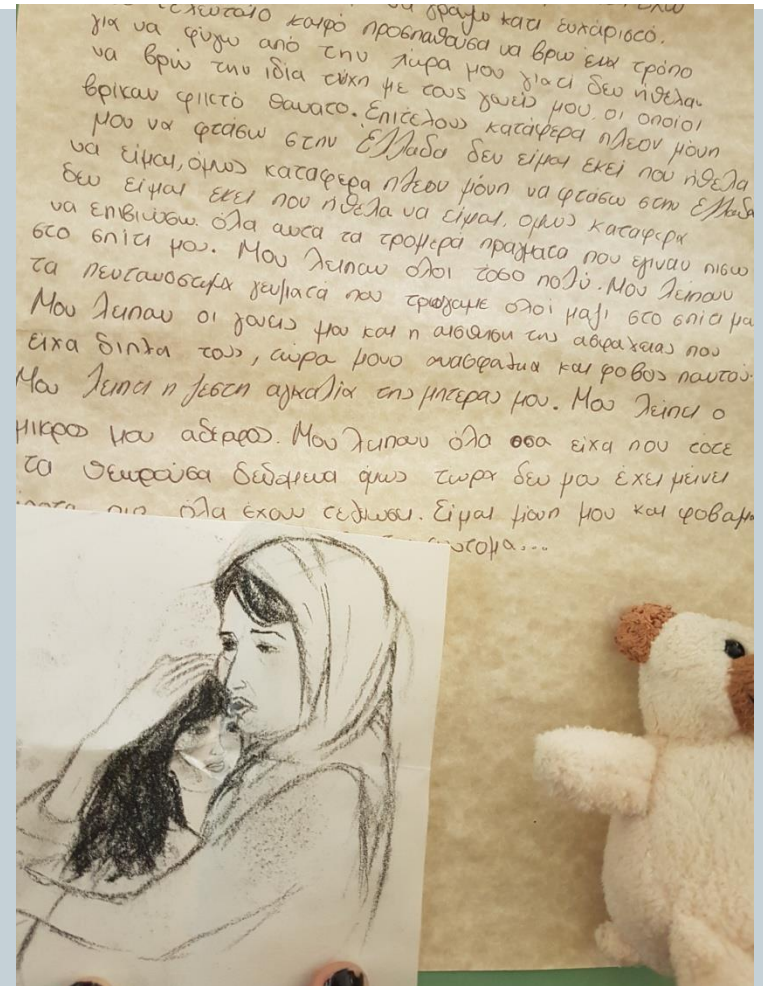 να γράψω κάτι ευχάριστο.
τελευταίο καιρό προσπαθούσα να βρω έναν τρόπο
για να φύγω από την χώρα μου γιατί δεν ήθελα
να βρω την ίδια τύχη με τους γονείς μου, οι οποίοι
βρίκαν φρικτό θάνατο. Επιτέλους κατάφερα πλεον μόνη
μου να φτάσω στην Ελλάδα δεν είμαι εκεί που ήθελα
να είμαι, όμως κατάφερα πλεον μόνη να φτάσω στην Ελλάδα
δεν είμαι εκεί που ήθελα να είμαι, όμως κατάφερα
να επιβιώσω όλα αυτα τα τρομερα πραγματα που εγιναν πισω
στο σπίτι μου. Μου λειπουν ολοι τοσο πολύ. Μου λειπουν
τα πεντανοστιμα γευματα που τρωγαμε ολοι μαζι στο σπιτι μα
Μου λειπουν οι γονεις μου και η αισθηση της ασφαλειας που
είχα διπλα τους, τωρα μονο ανασφαλεια και φοβος παντού.
Μου λειπει η ζεστη αγκαλια της μητερας μου. Μου λειπει ο
μικρος μου αδερφος. Μου λειπουν όλα οσα είχα που τοτε
τα θεωρούσα δεδομενα όμως τωρα δεν μου έχει μείνει
τίποτα πια όλα έχουν τελειωσει. Είμαι μόνη μου και φοβαμα